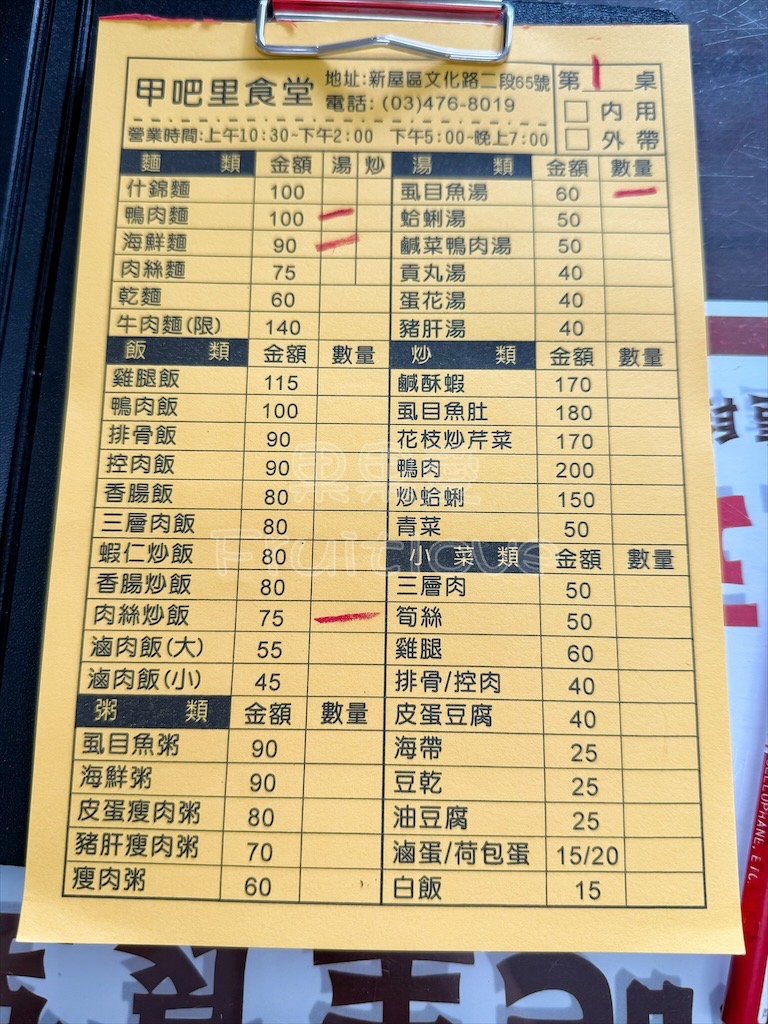 甲吧里食堂
地址:新屋區文化路二段65號
電話:(03)476-8019
第1桌
內用
外帶
營業時間:上午10:30~下午2:00 下午5:00~晚上7:00
麵類 金額 湯 炒
什錦麵 100
鴨肉麵 100
海鮮麵 90
肉絲麵 75
乾麵 60
牛肉麵(限) 140
飯類 金額 數量
雞腿飯 115
鴨肉飯 100
排骨飯 90
控肉飯 90
香腸飯 80
三層肉飯 80
蝦仁炒飯 80
香腸炒飯 80
肉絲炒飯 75
滷肉飯(大) 55
滷肉飯(小) 45
粥類 金額 數量
虱目魚粥 90
海鮮粥 90
皮蛋瘦肉粥 80
豬肝瘦肉粥 70
瘦肉粥 60
湯類 金額 數量
虱目魚湯 60
蛤蜊湯 50
鹹菜鴨肉湯 50
貢丸湯 40
蛋花湯 40
豬肝湯 40
炒類 金額 數量
鹹酥蝦 170
虱目魚肚 180
花枝炒芹菜 170
鴨肉 200
炒蛤蜊 150
青菜 50
小菜類 金額 數量
三層肉 50
筍絲 50
雞腿 60
排骨/控肉 40
皮蛋豆腐 40
海帶 25
豆乾 25
油豆腐 25
滷蛋/荷包蛋 15/20
白飯 15
Fruitlove
CELLOPHANE, ETC.